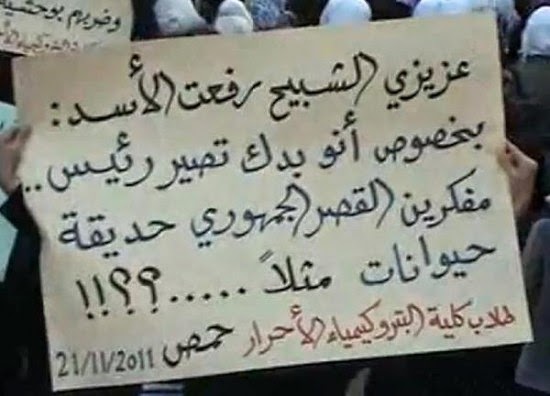 وضريهم بوحشية
عزيزي الشبيح رفعت الأسد :
بخصوص أنو بدك تصير رئيس ..
مفكرين القصر الجمهوري حديقة
حيوانات مثلاً .....؟؟!!
طلاب كلية البتروكيمياء الأحرار حمص 21/11/2011